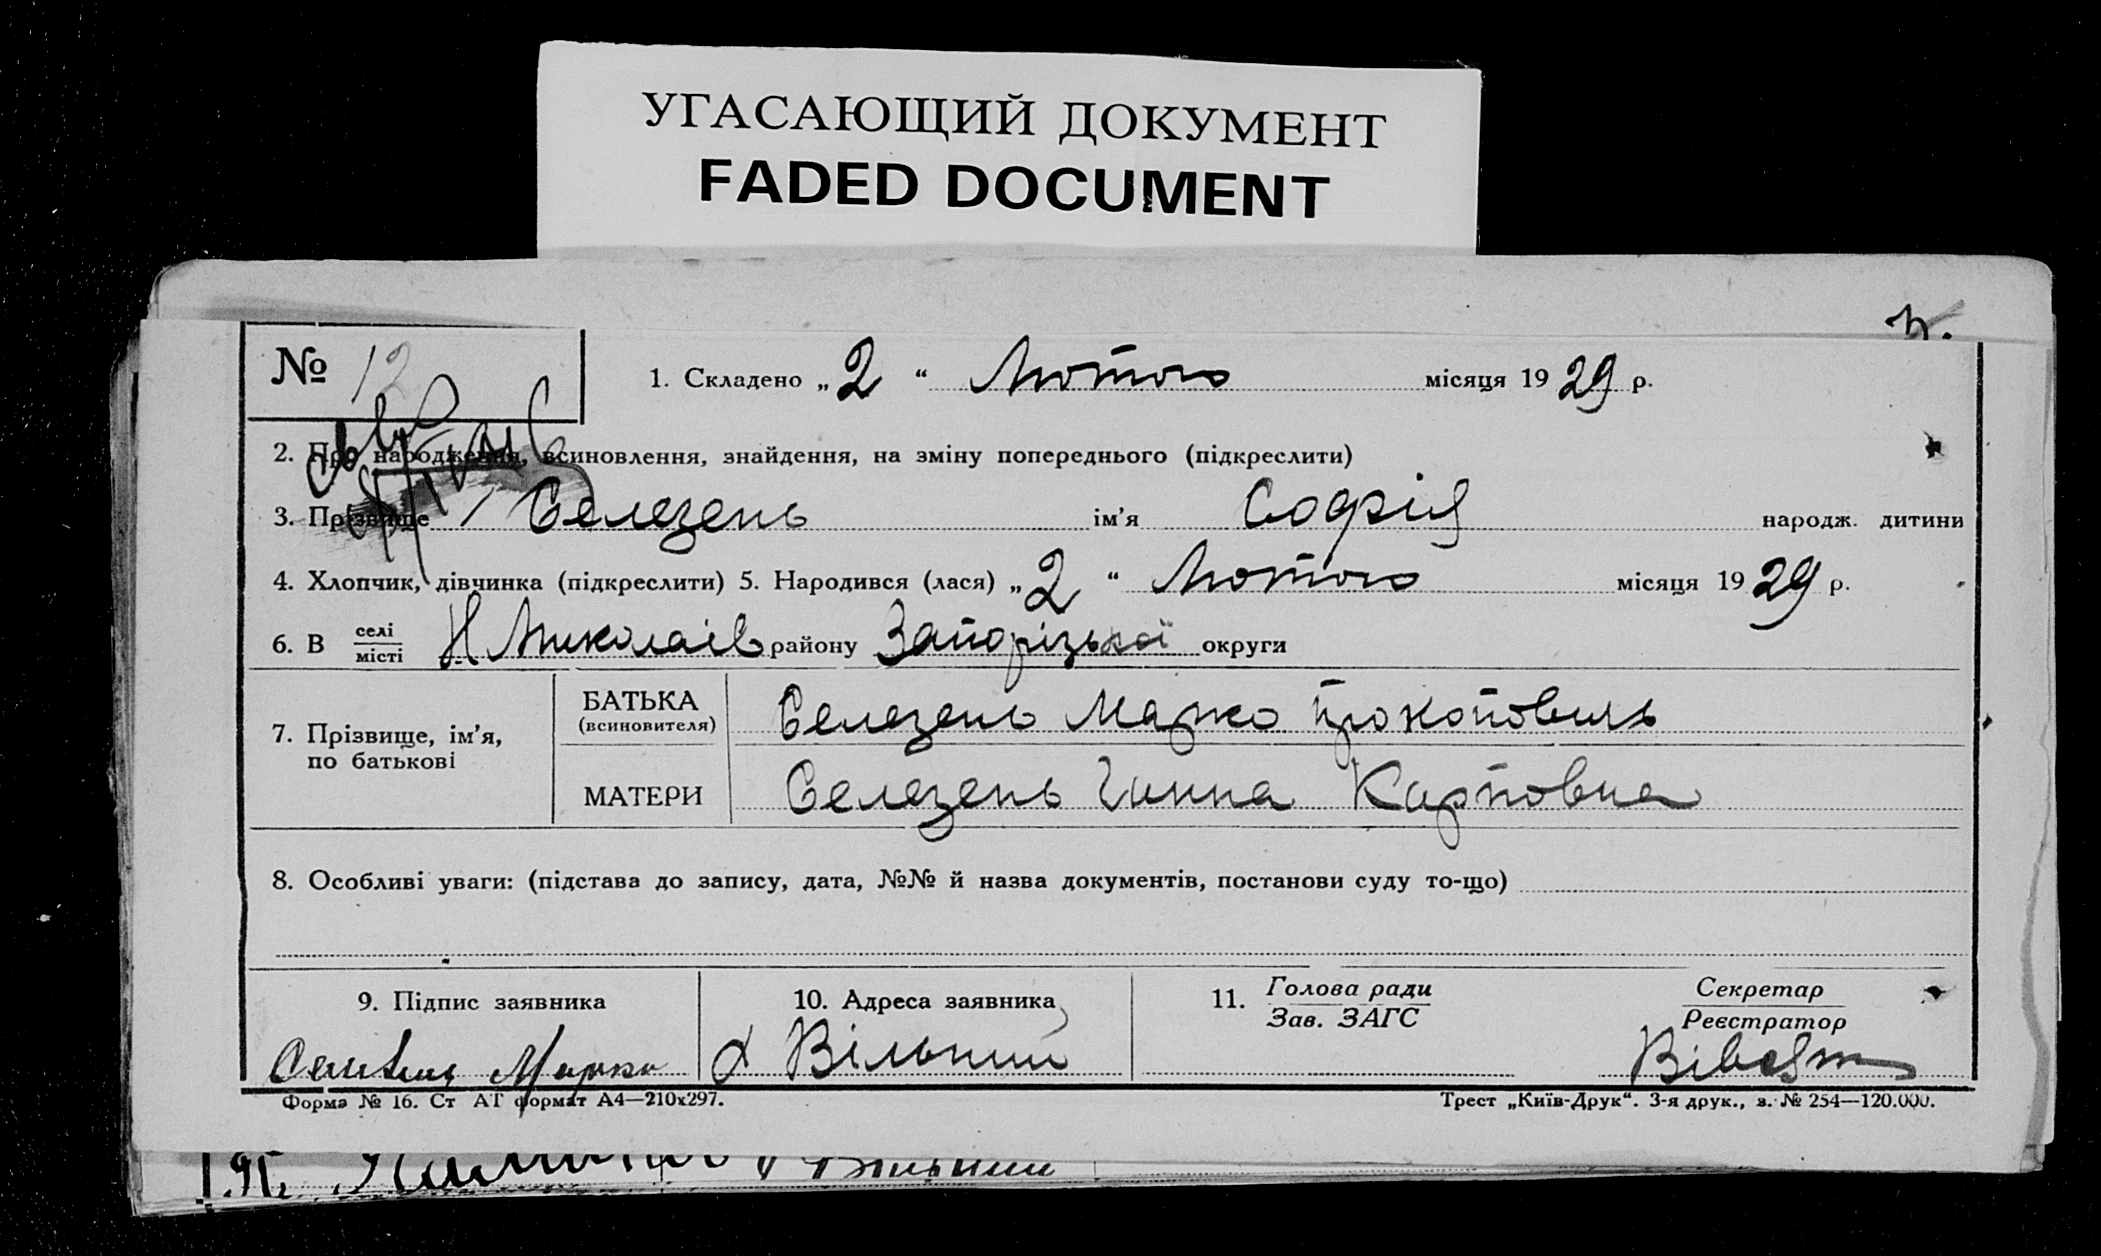 УГАСАЮЩИЙ ДОКУМЕНТ
FADED DOCUMENT
№ 12
1. Складено „2“ Лютого місяця 1929 р.
2. Про народження, всиновлення, знайдення, на зміну попереднього (підкреслити)
3. Прізвище Селезень ім’я Софія народж. дитини
4. Хлопчик, дівчинка (підкреслити) 5. Народився (лася) „2“ Лютого місяця 1929 р.
6. В селі
місті Н Миколаїв району Запорізької округи
7. Прізвище, ім’я, по батькові
БАТЬКА (всиновителя) Селезень Марко Прокопович
МАТЕРИ Селезень Ганна Карповна
8. Особливі уваги: (підстава до запису, дата, №№ й назва документів, постанови суду то-що)
9. Підпис заявника
10. Адреса заявника
11. Голова ради
Зав. ЗАГС
Секретар
Реєстратор
Марко
х Вільний
Форма № 16. Ст АТ формат А4—210х297.
Трест „Київ-Друк“. 3-я друк., з. № 254—120.000.